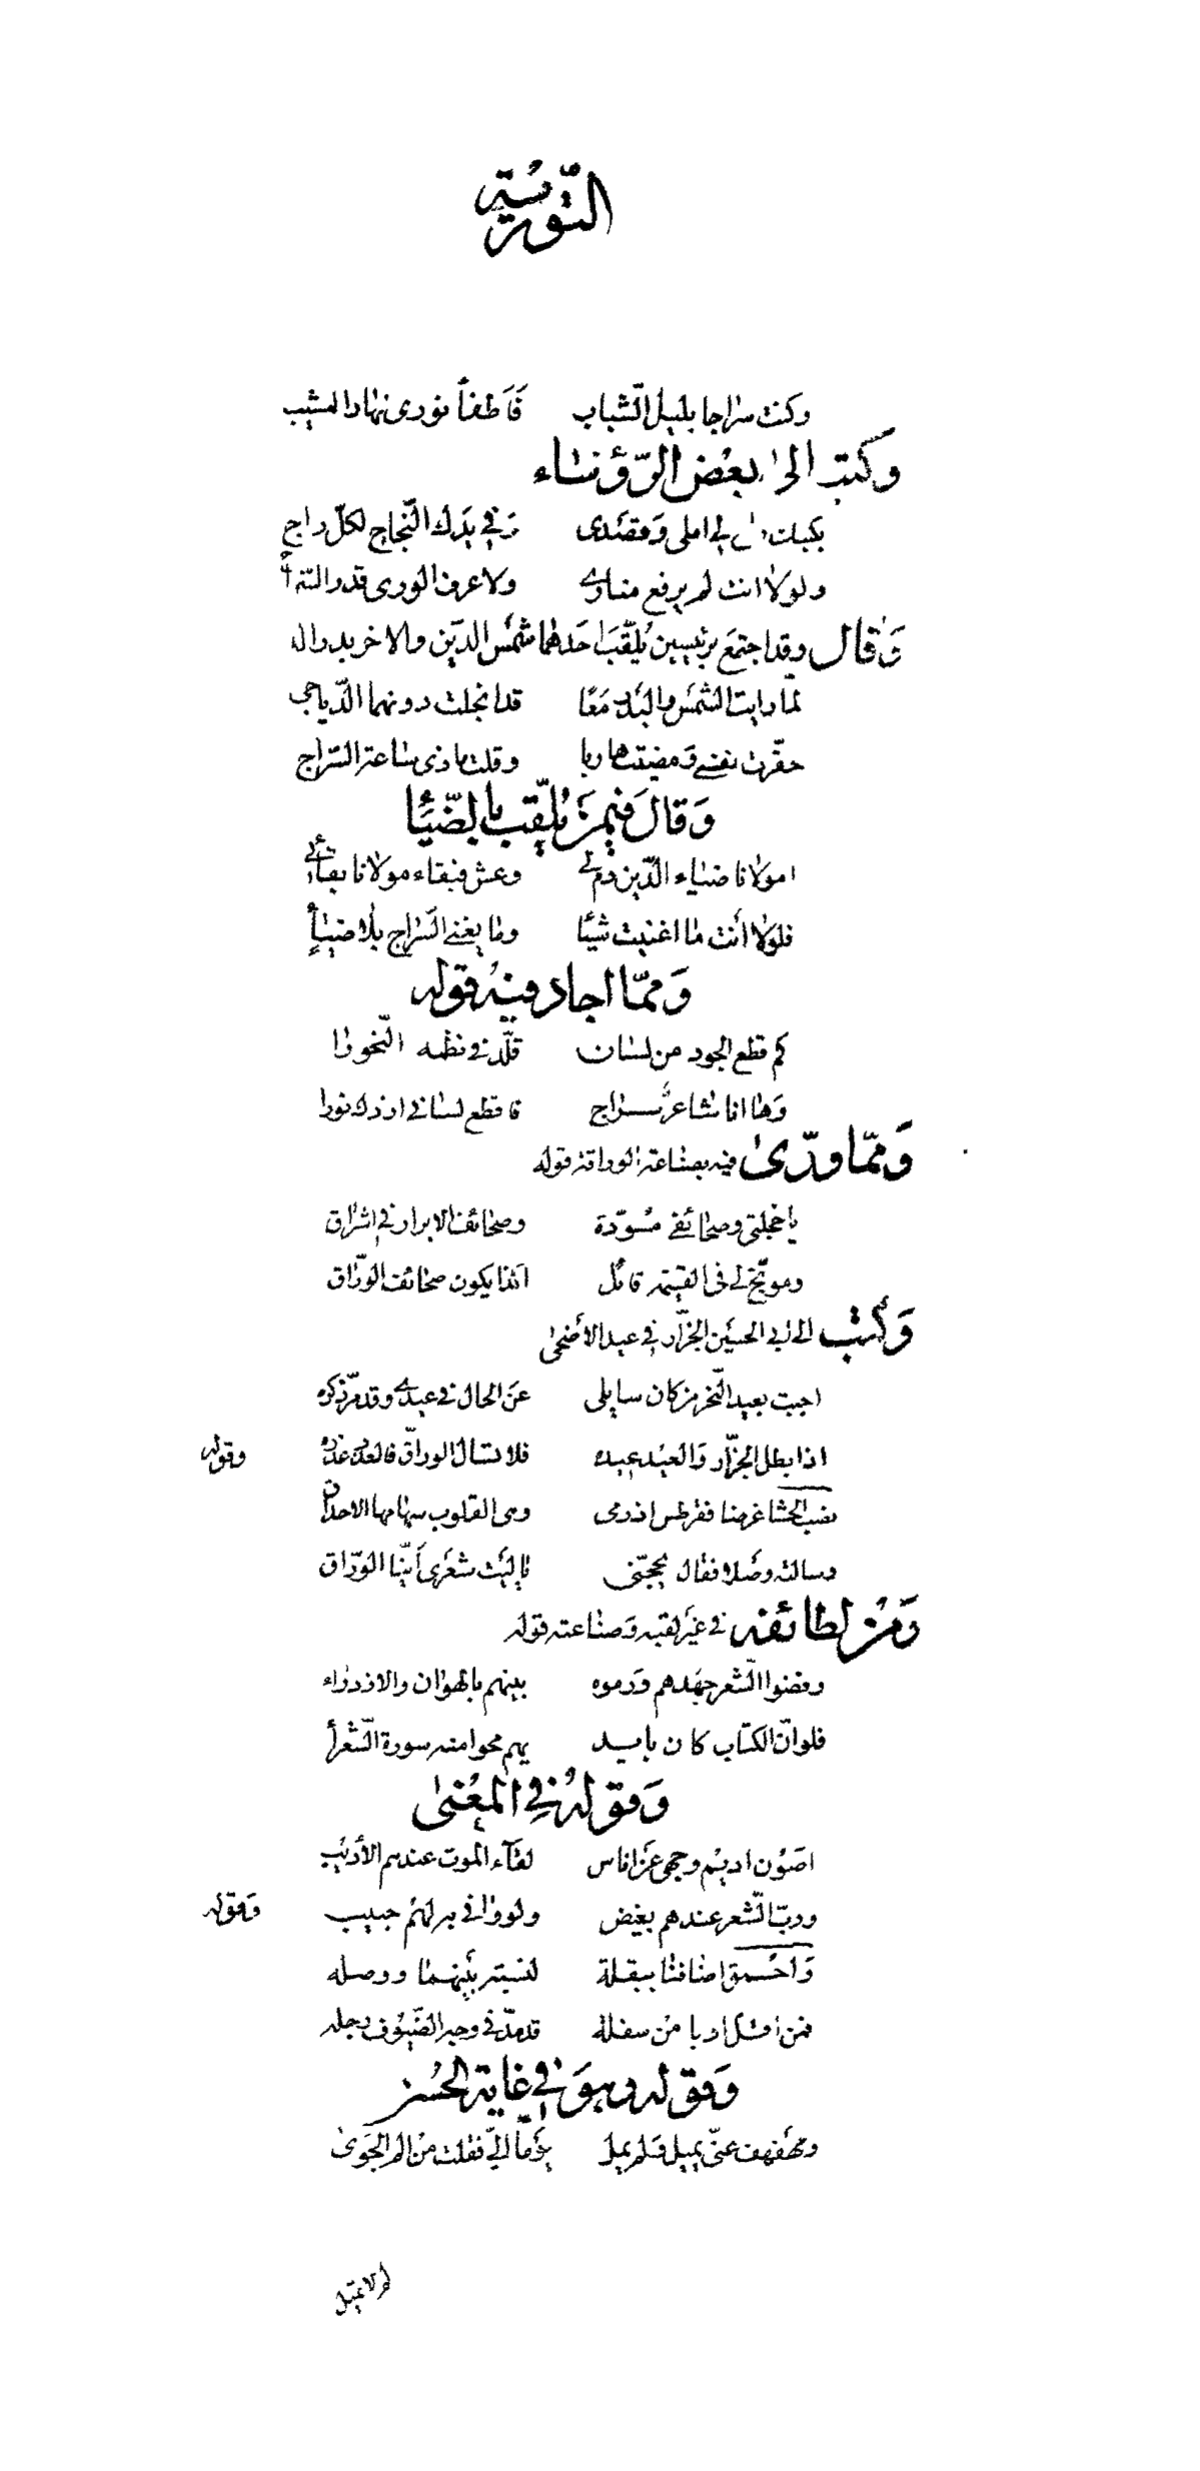 التورية
وكنت سراجا بليل الشباب فَاَطفأ نورى نهار المشيب
وكتب الى بعض الرّؤساء
بكبابك املى وَمقصَدى وَفى يدك النّجاح لكلّ راج
ولولا انت لم يرفع منارى ولا عرف الورى قدر السّرا
وَقال وقد اجتمعَ برئيسين يُلقّبَ احَدهما شمسُ الدّين والاخر بدر ال
لمّا رايت الشمسُ والبَدر مَعًا قد انجلت دونهما الدّياجى
حقّرت نفسى وَمضيت هاربا وقلت ماذى ساعة السّراج
وَقالَ فيمن يُلقّب بالضّيَأ
امولانا ضياء الدّين دم لى وعش فبقاء مولانا بقائى
فلولا أنت ما اغنيت شيئا وما يغنى السَّراج بلا ضيأٍ
وَممّا اجاد فيهُ قوله
كم قطع الجود من لسان قلّد فى نظمه النّحورا
وَها انا شاعرٌ سراج فاقطع لسانى ازدك نورا
وَممّا ورّىٰ فيه بصناعة الوراقة قوله
يا خجلتى وصحائفى مسُوّدة وصحائف الابرار فى اشراق
وموبّخ لى فى القيٰمة قائل اكذا يكون صحائف الورّاق
وَكتب الى ابى الحسَين الجزّار فى عيد الأضحىٰ
اجبت بعيد النّحر من كان سايلى عنَ الحال فى عيدى وقد مرّ ذكره
اذا بطل الجزّار وَالعيد عيده فلا تسال الورّاق فالعذر عذره وقوله
نصب الحشا غرضا فقرطس اذ رمى ورمى القلوب سهامها الاحداق
وسالته وصَلا فقال بحجّتى يا ليَت شعَرى أينّا الورّاق
وَمن لطائفه فى غيَر لقبه وَصناعته قوله
رفضوا الشّعر جهَدهم وَرموه بينهم بالهوان والازدراء
فلو انّ الكتاب كان بايديهم محوا منه سورة الشّعرأ
وَقوله فى المعُنىٰ
اصَوُن اديُم وجهى عَن اناس لقآء الموت عندهم الأديَب
وربّ الشّعر عندهم بغيض ولو وافى به لهُم حبيب وَقوله
وَاحَمق اضافنا ببقلة لنسبة بيَنهما ووصله
فمن اقل ادبا منُ سفلة قد مدّ فى وجه الضّيُوف رجله
وَقوله وهوَ فى غاية الحسُن
ومهَفهف عنّى يميل وَلم يمل يوَمًا الىّ فقلت منُ الم الجَوىٰ
لم لا تميل